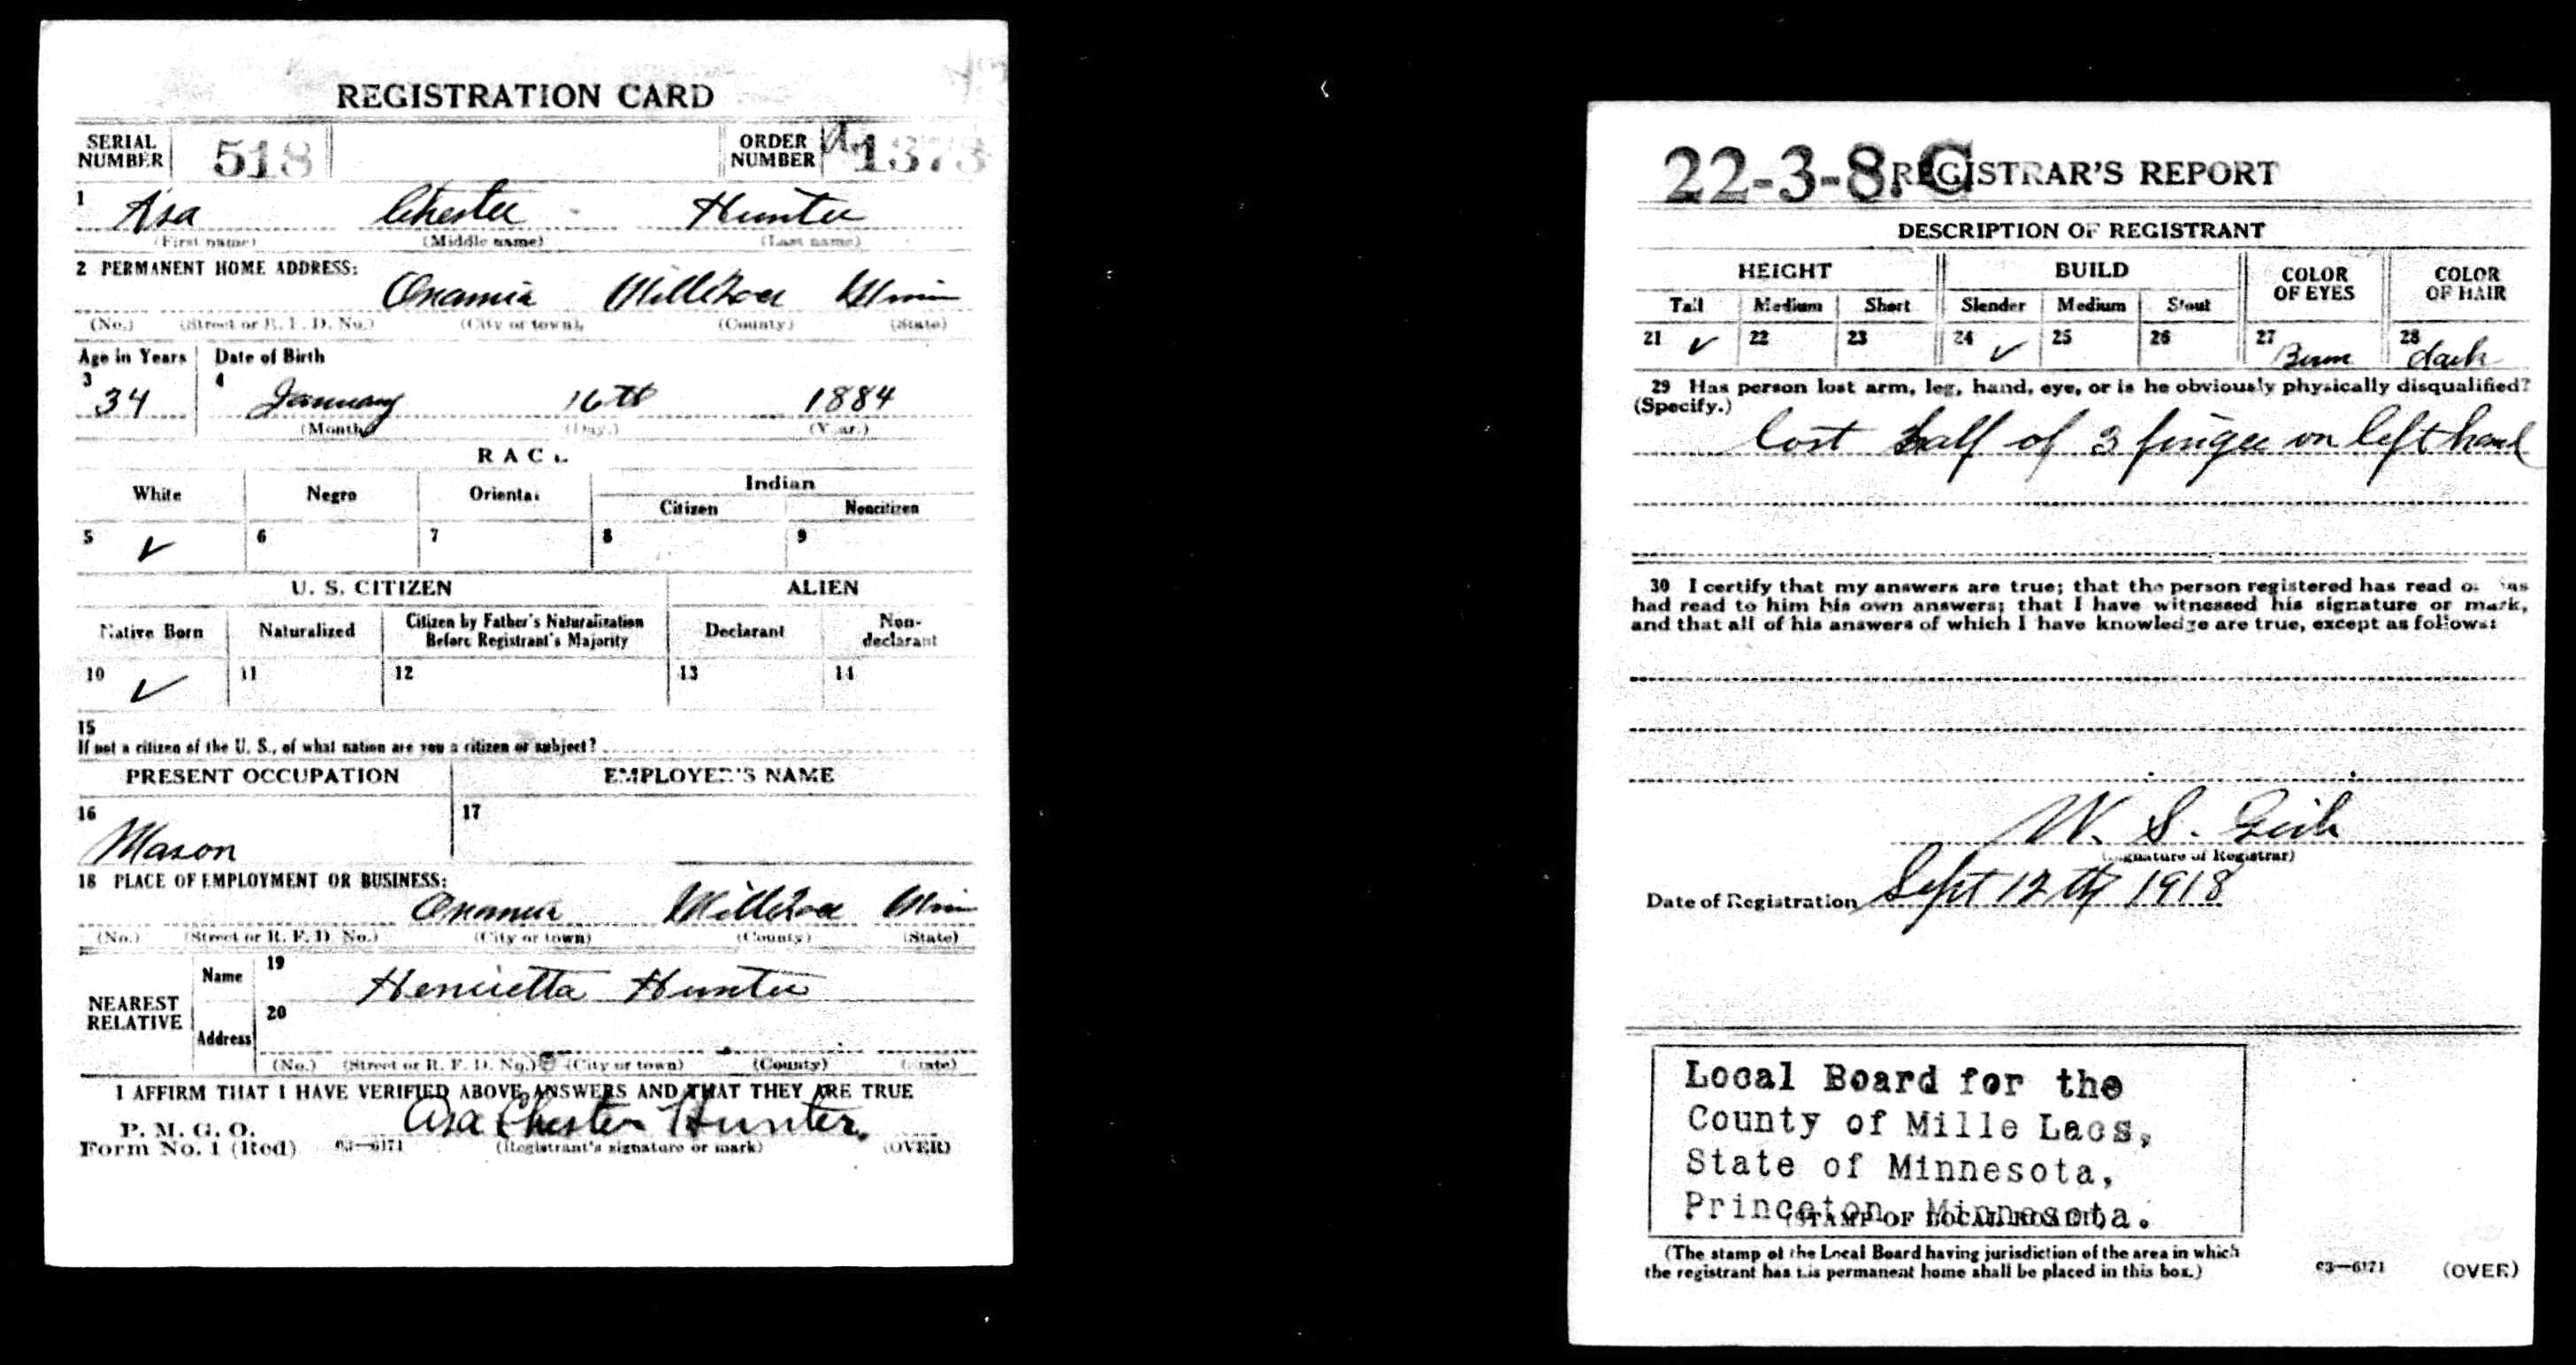 REGISTRATION CARD
SERIAL NUMBER 518 ORDER NUMBER A 1373
1 Asa Chester Hunter
(First name) (Middle name) (Last name)
2 PERMANENT HOME ADDRESS:
Onamia Mille Lacs Minn
(No.) (Street or R. F. D. No.) (City or town) (County) (State)
Age in Years Date of Birth
3 34 4 January 16th 1884
(Month) (Day.) (Year.)
RACE
White Negro Oriental Indian
Citizen Noncitizen
5 ✓ 6 7 8 9
U. S. CITIZEN ALIEN
Native Born Naturalized Citizen by Father's Naturalization Before Registrant's Majority Declarant Non-declarant
10 ✓ 11 12 13 14
15
If not a citizen of the U. S., of what nation are you a citizen or subject?
PRESENT OCCUPATION EMPLOYER'S NAME
16 17
Mason
18 PLACE OF EMPLOYMENT OR BUSINESS:
Onamia Mille Lacs Minn
(No.) (Street or R. F. D. No.) (City or town) (County) (State)
NEAREST RELATIVE Name 19 Henrietta Hunter
Address 20
(No.) (Street or R. F. D. No.) (City or town) (County) (State)
I AFFIRM THAT I HAVE VERIFIED ABOVE ANSWERS AND THAT THEY ARE TRUE
Asa Chester Hunter.
P. M. G. O.
Form No. 1 (Red) 03—6171 (Registrant's signature or mark) (OVER)
22-3-8. C REGISTRAR'S REPORT
DESCRIPTION OF REGISTRANT
HEIGHT BUILD COLOR OF EYES COLOR OF HAIR
Tall Medium Short Slender Medium Stout
21 ✓ 22 23 24 ✓ 25 26 27 28 dark
29 Has person lost arm, leg, hand, eye, or is he obviously physically disqualified?
(Specify.)
lost half of 3 finger on left hand
30 I certify that my answers are true; that the person registered has read or has
had read to him his own answers; that I have witnessed his signature or mark,
and that all of his answers of which I have knowledge are true, except as follows:
W. S.
(Signature of Registrar)
Date of Registration Sept 12th 1918
Local Board for the
County of Mille Lacs,
State of Minnesota,
Princeton, Minnesota.
(STAMP OF LOCAL BOARD)
(The stamp of the Local Board having jurisdiction of the area in which
the registrant has his permanent home shall be placed in this box.)
03—6171 (OVER)